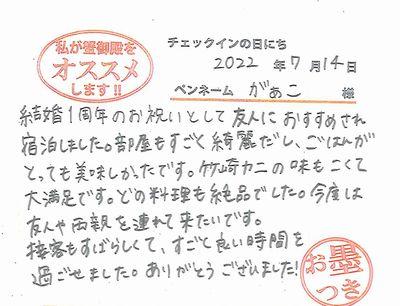 私が蟹御殿を
オススメ
します!!
チェックインの日にち
2022 年 7 月 14 日
ペンネーム がぁこ 様
結婚1周年のお祝いとして友人におすすめされ
宿泊しました。部屋もすごく綺麗だし、ごはんが
とっても美味しかったです。竹崎カニの味もこくて
大満足です。どの料理も絶品でした。今度は
友人や両親を連れて来たいです。
接客もすばらしくて、すごく良い時間を
過ごせました。ありがとうございました!
お墨
つき